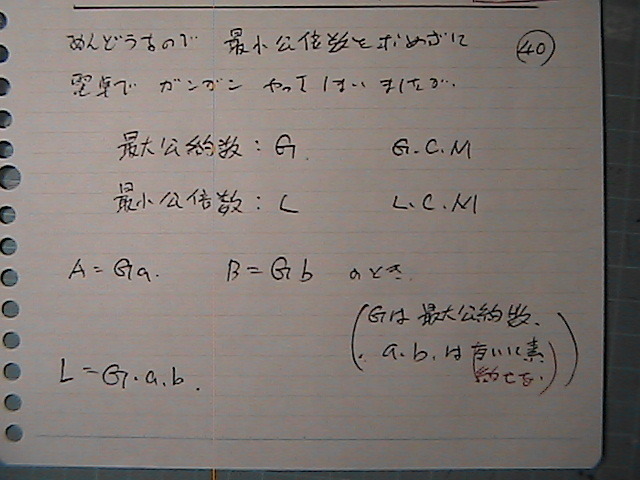 めんどうなので 最小公倍数を求めずに
電卓で ガンガン やってしまいましたが、
40
最大公約数:G. G.C.M
最小公倍数:L L.C.M
A=Ga. B=Gb のとき
(Gは最大公約数、
a.b.は互いに素)
L=G.a.b.